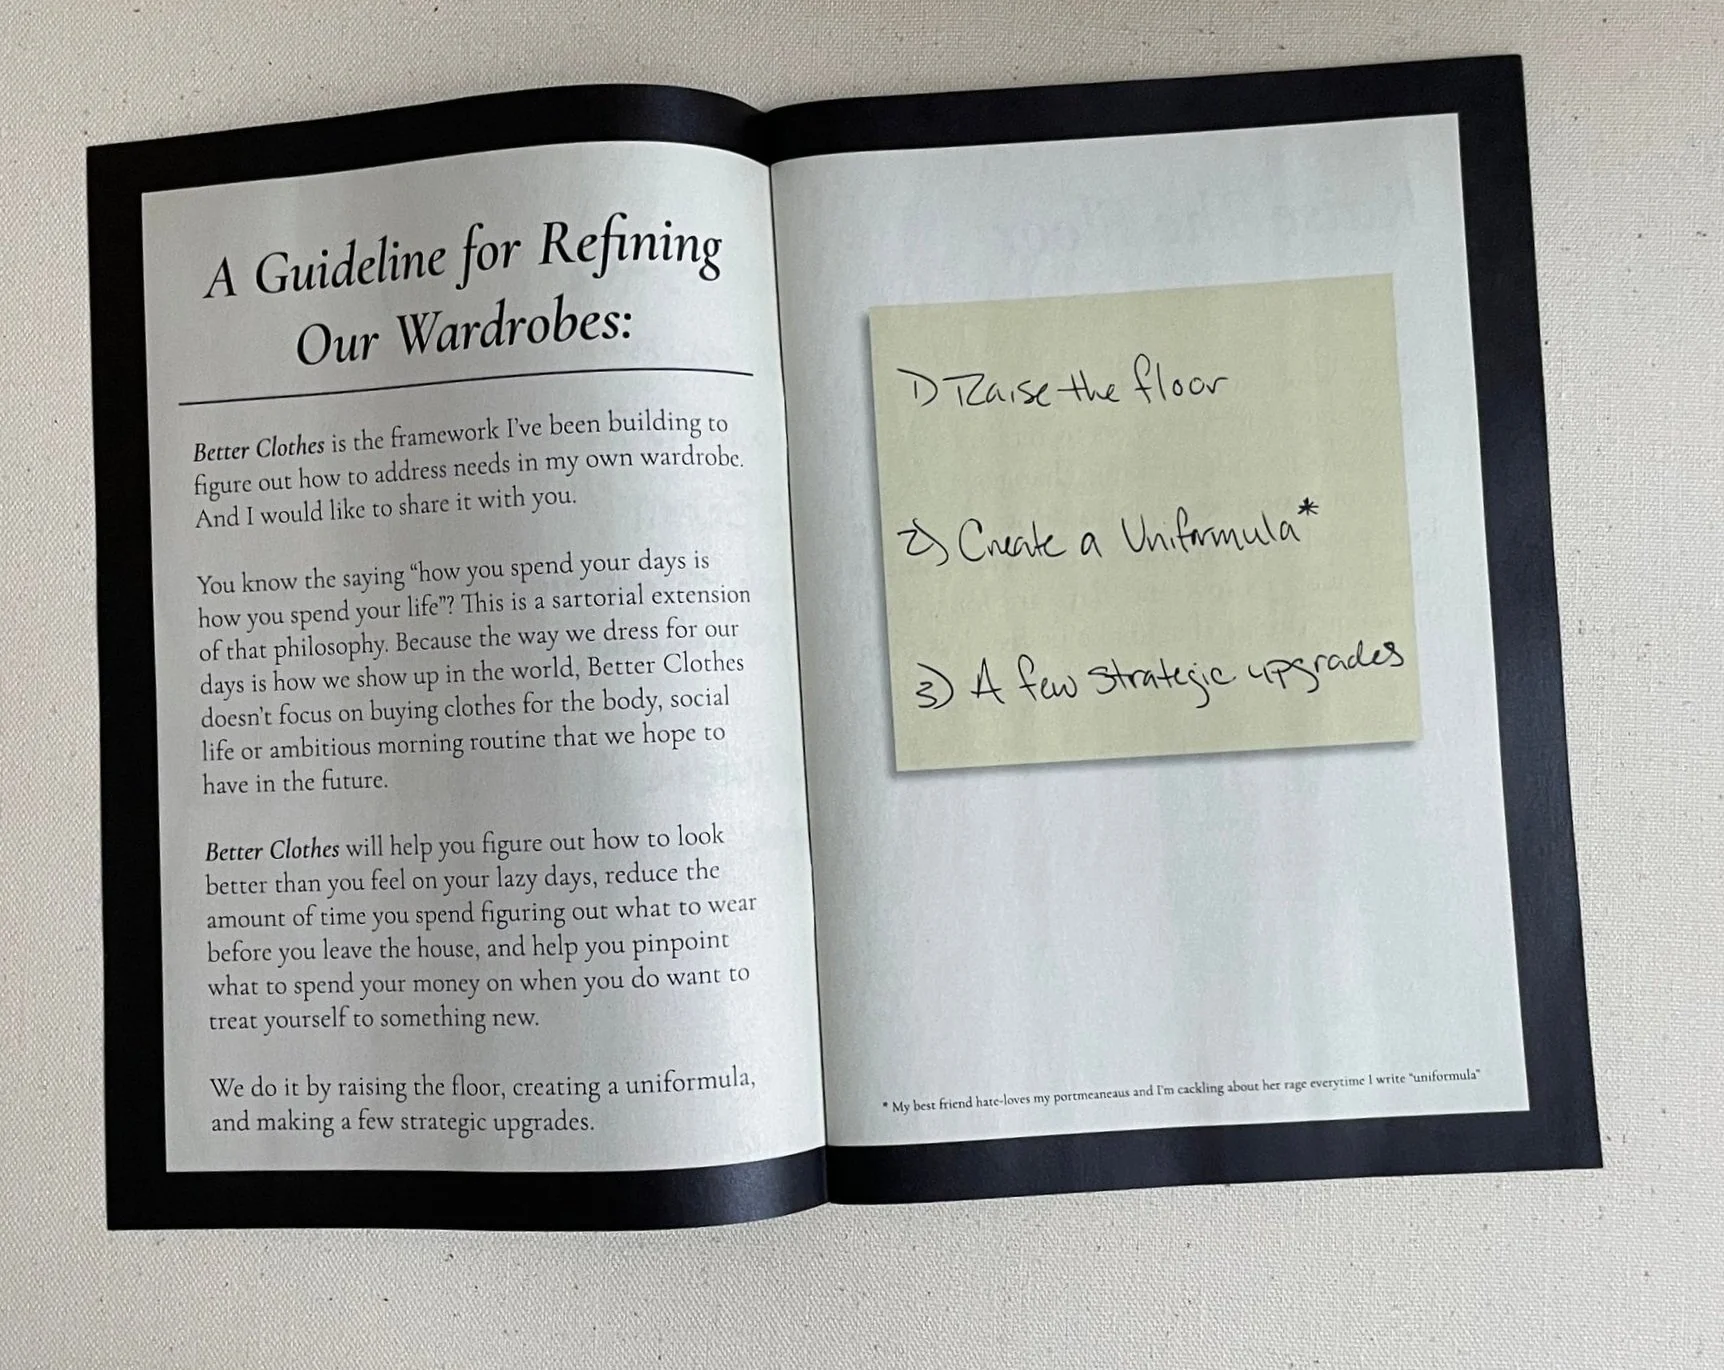 A Guideline for Refining
Our Wardrobes:
Better Clothes is the framework I've been building to
figure out how to address needs in my own wardrobe.
And I would like to share it with you.
You know the saying “how you spend your days is
how you spend your life”? This is a sartorial extension
of that philosophy. Because the way we dress for our
days is how we show up in the world, Better Clothes
doesn't focus on buying clothes for the body, social
life or ambitious morning routine that we hope to
have in the future.
Better Clothes will help you figure out how to look
better than you feel on your lazy days, reduce the
amount of time you spend figuring out what to wear
before you leave the house, and help you pinpoint
what to spend your money on when you do want to
treat yourself to something new.
We do it by raising the floor, creating a uniformula,
and making a few strategic upgrades.
1) Raise the floor
2) Create a Uniformula*
3) A few strategic upgrades
* My best friend hate-loves my portmeaneaus and I'm cackling about her rage everytime I write “uniformula”